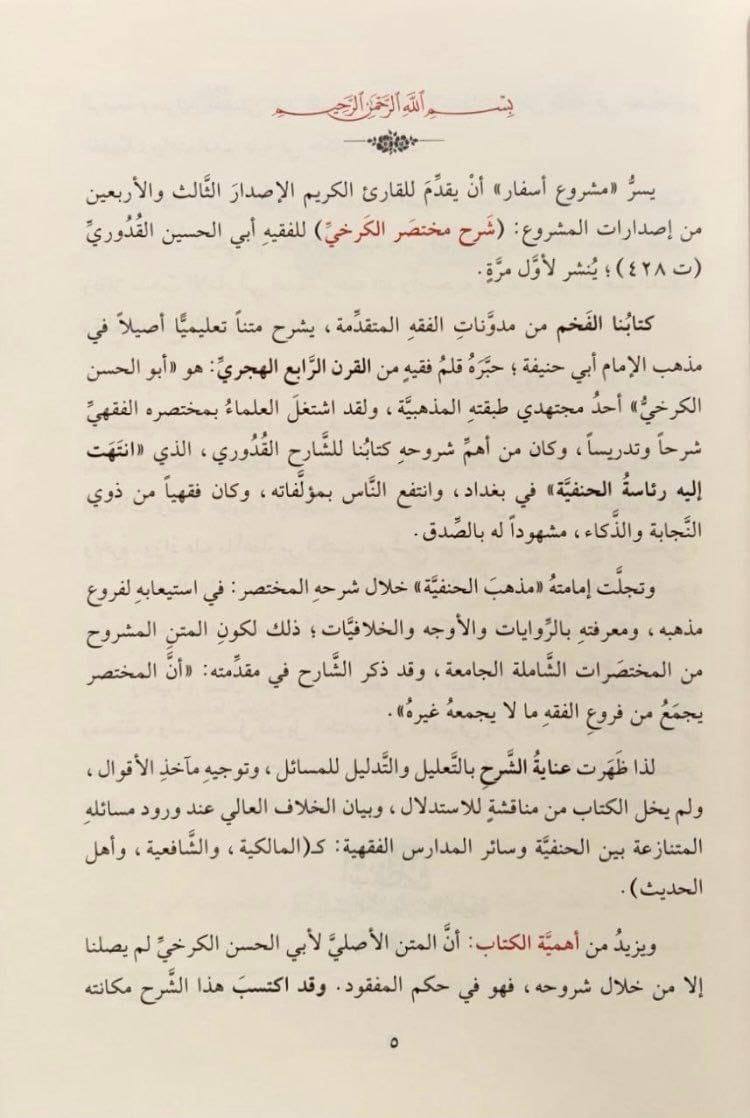 بِسْمِ اللَّهِ الرَّحْمَٰنِ الرَّحِيمِ
يسرُّ «مشروع أسفار» أنْ يقدِّمَ للقارئ الكريم الإصدارَ الثَّالث والأربعين
من إصدارات المشروع: (شَرح مختصَر الكَرخيِّ) للفقيهِ أبي الحسين القُدُوريِّ
(ت ٤٢٨)؛ يُنشر لأوَّل مرَّةٍ.
كتابُنا الفَخم من مدوَّناتِ الفقهِ المتقدِّمة، يشرح متناً تعليميًّا أصيلاً في
مذهب الإمام أبي حنيفة؛ حبَّرَهُ قلمُ فقيهٍ من القرن الرَّابع الهجريِّ: هو «أبو الحسن
الكرخيُّ» أحدُ مجتهدي طبقتهِ المذهبيَّة، ولقد اشتغلَ العلماءُ بمختصره الفقهيِّ
شرحاً وتدريساً، وكان من أهمِّ شروحهِ كتابُنا للشَّارح القُدُوري، الذي «انتَهَت
إليه رئاسةُ الحنفيَّة» في بغداد، وانتفع النَّاس بمؤلَّفاته، وكان فقهياً من ذوي
النَّجابة والذَّكاء، مشهوداً له بالصِّدق.
وتجلَّت إمامتهُ «مذهبَ الحنفيَّة» خلال شرحهِ المختصر: في استيعابهِ لفروع
مذهبه، ومعرفتهِ بالرِّوايات والأوجه والخلافيَّات؛ ذلك لكونِ المتنِ المشروح
من المختصَرات الشَّاملة الجامعة، وقد ذكر الشَّارح في مقدِّمته: «أنَّ المختصر
يجمَعُ من فروعِ الفقهِ ما لا يجمعهُ غيرهُ».
لذا ظَهَرت عنايةُ الشَّرحِ بالتَّعليل والتَّدليل للمسائل، وتوجيهِ مآخذِ الأقوال،
ولم يخل الكتاب من مناقشةٍ للاستدلال، وبيان الخلاف العالي عند ورود مسائلهِ
المتنازعة بين الحنفيَّة وسائر المدارس الفقهية: كـ(المالكية، والشَّافعية، وأهل
الحديث).
ويزيدُ من أهميَّة الكتاب: أنَّ المتن الأصليَّ لأبي الحسن الكرخيِّ لم يصلنا
إلا من خلال شروحه، فهو في حكم المفقود. وقد اكتسبَ هذا الشَّرح مكانته
٥